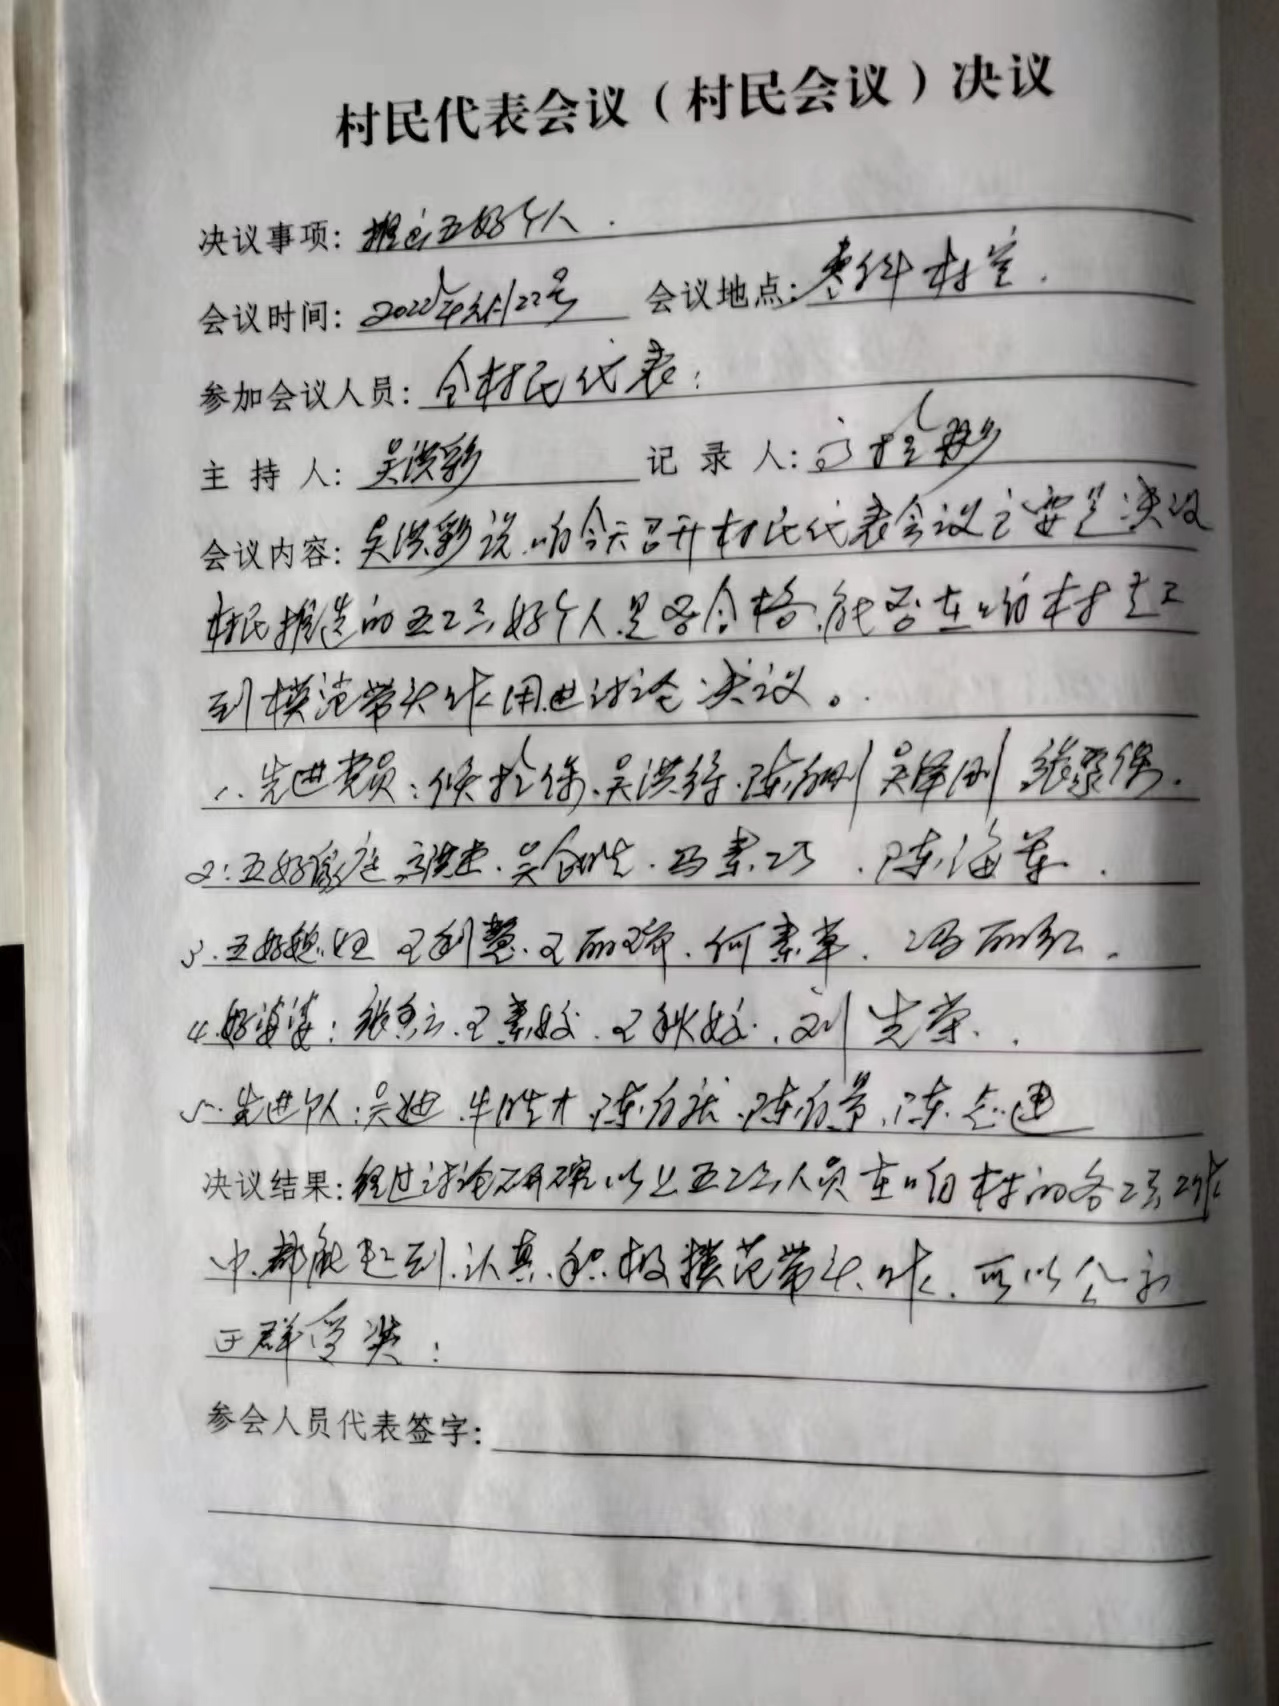 村民代表会议（村民会议）决议
决议事项：推选五好个人.
会议时间：2022年 月22号 会议地点：村室.
参加会议人员：全村民代表：
主持人：吴洪彩 记录人：
会议内容：吴洪彩说.咱今天召开村民代表会议主要是决议
村民推选的五项好个人是否合格.能否在咱村起
到模范带头作用进讨论决议。
1.先进党员：吴洪
2：五好家庭.吴.马素巧.陈海军.
3.五好媳妇 王利慧.王丽.何素草.冯丽红.
4.好婆婆：张.王素姣.王秋姣.刘先荣.
5.先进个人：吴 牛胜才 陈 陈 陈志
决议结果：经过讨论研究以上五项人员在咱村的各项工作
中.都能起到.认真.积极模范带头.作.可以公示
于群受奖：
参会人员代表签字：